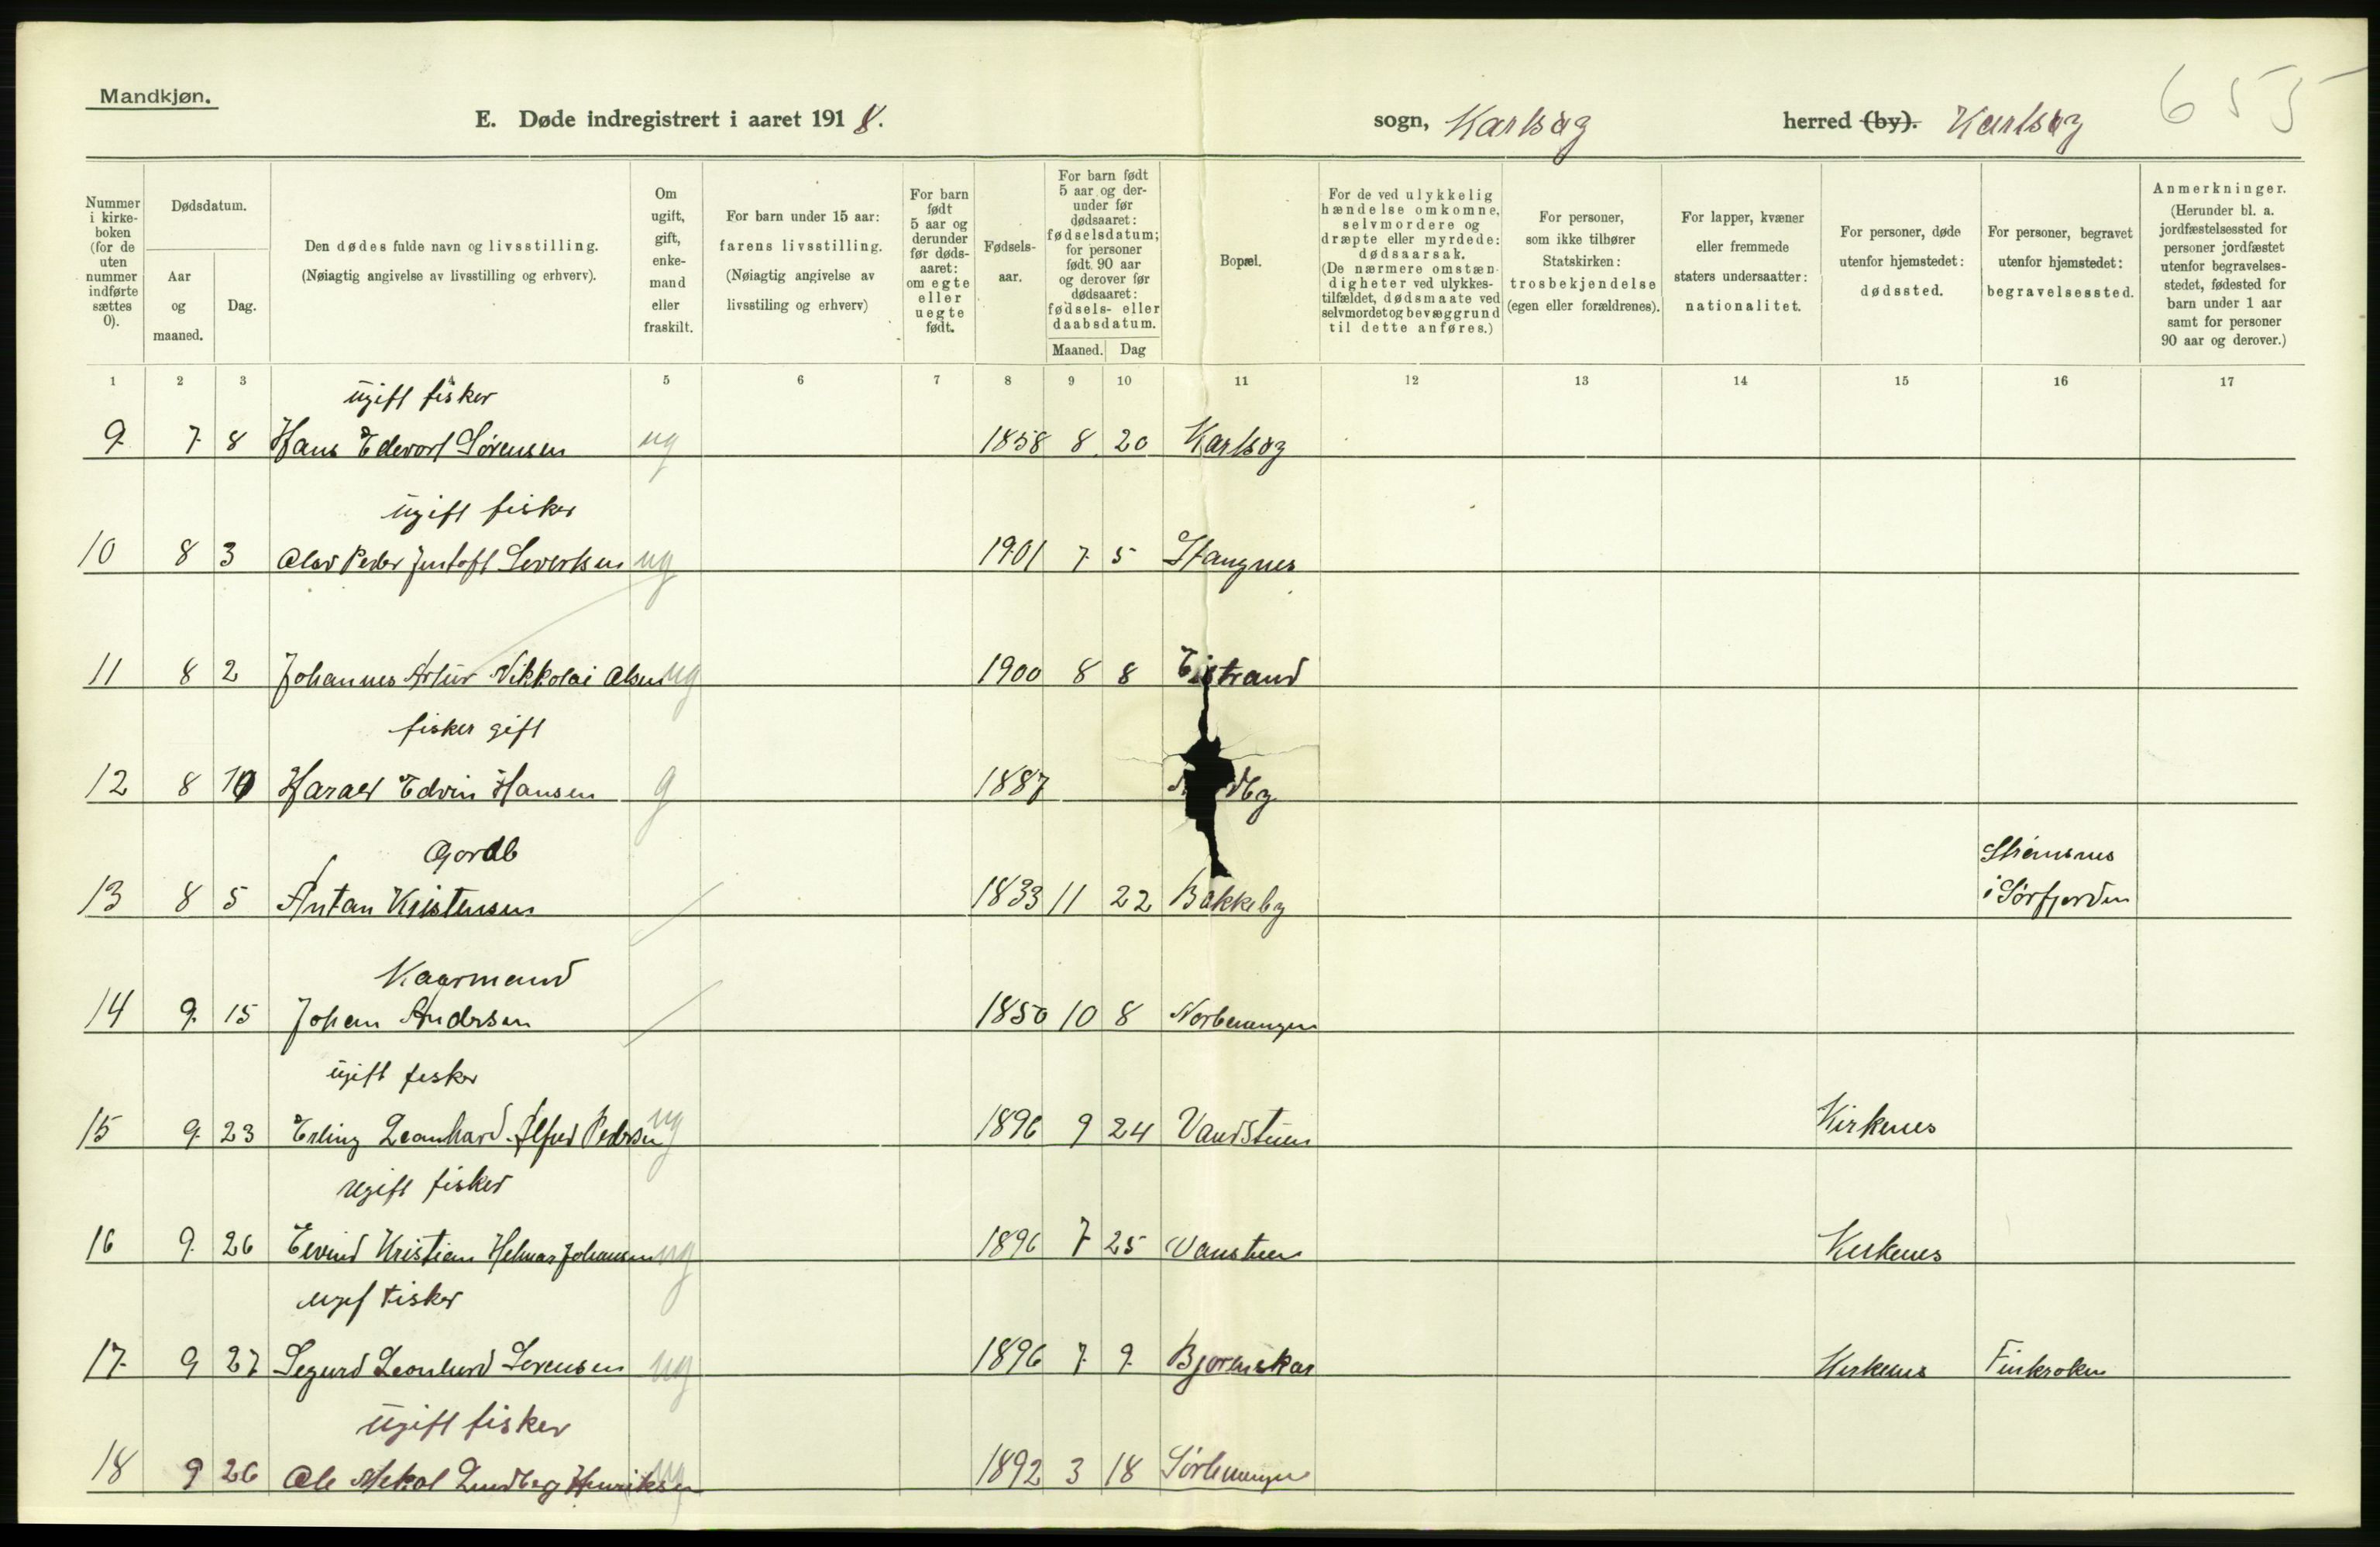 Mandkjøn.
E. Døde indregistrert i aaret 1918.
sogn, Karlsøy
herred (by). Karlsøy
655
Nummer i kirkeboken (for de uten nummer indførte sættes 0).
Dødsdatum.
Aar og maaned.
Dag.
Den dødes fulde navn og livsstilling.
(Nøiagtig angivelse av livsstilling og erhverv).
Om ugift, gift, enkemand eller fraskilt.
For barn under 15 aar: farens livsstilling.
(Nøiagtig angivelse av livsstiling og erhverv)
For barn født 5 aar og derunder før dødsaaret: om egte eller uegte født.
Fødselsaar.
For barn født 5 aar og derunder før dødsaaret: fødselsdatum; for personer født 90 aar og derover før dødsaaret: fødsels- eller daabsdatum.
Maaned.
Dag
Bopæl.
For de ved ulykkelig hændelse omkomne, selvmordere og dræpte eller myrdede: dødsaarsak.
(De nærmere omstændigheter ved ulykkestilfældet, dødsmaate ved selvmordet og bevæggrund til dette anføres.)
For personer, som ikke tilhører Statskirken: trosbekjendelse (egen eller forældrenes).
For lapper, kvæner eller fremmede staters undersaatter: nationalitet.
For personer, døde utenfor hjemstedet: dødssted.
For personer, begravet utenfor hjemstedet: begravelsessted.
Anmerkninger.
(Herunder bl. a. jordfæstelsessted for personer jordfæstet utenfor begravelsesstedet, fødested for barn under 1 aar samt for personer 90 aar og derover.)
1 2 3 5 6 7 8 9 10 11 12 13 14 15 16 17
ugift fisker
9 7 8 Hans Edevart Sørensen ug 1858 8 20 Karlsøy
ugift fisker
10 8 3 Olav Peder Severtsen ug 1901 7 5 Stangnes
11 8 2 Johannes Artur Nikkolai Olsen ug 1900 8 8
fisker gift
12 8 10 Harald Edvin Hansen g 1887
Gordb
13 8 5 Antan Kristensen 1833 11 22 Bakkeby Strømsnes
i Sørfjorden
Kaarmand
14 9 15 Johan Andersen 1850 10 8
ugift fisker
15 9 23 Erling Leonhard Alfred Pedersen ug 1896 9 24 Kirkenes
ugift fisker
16 9 26 Eivind Kristian Helmar Johansen ug 1896 7 25 Kirkenes
ugif fisker
17 9 27 Segurd Leonhard Sørensen ug 1896 7 9 Bjornskar Kirkenes Finkroken
ugift fisker
18 9 26 Ole Mekal Lundberg Henriksen ug 1892 3 18